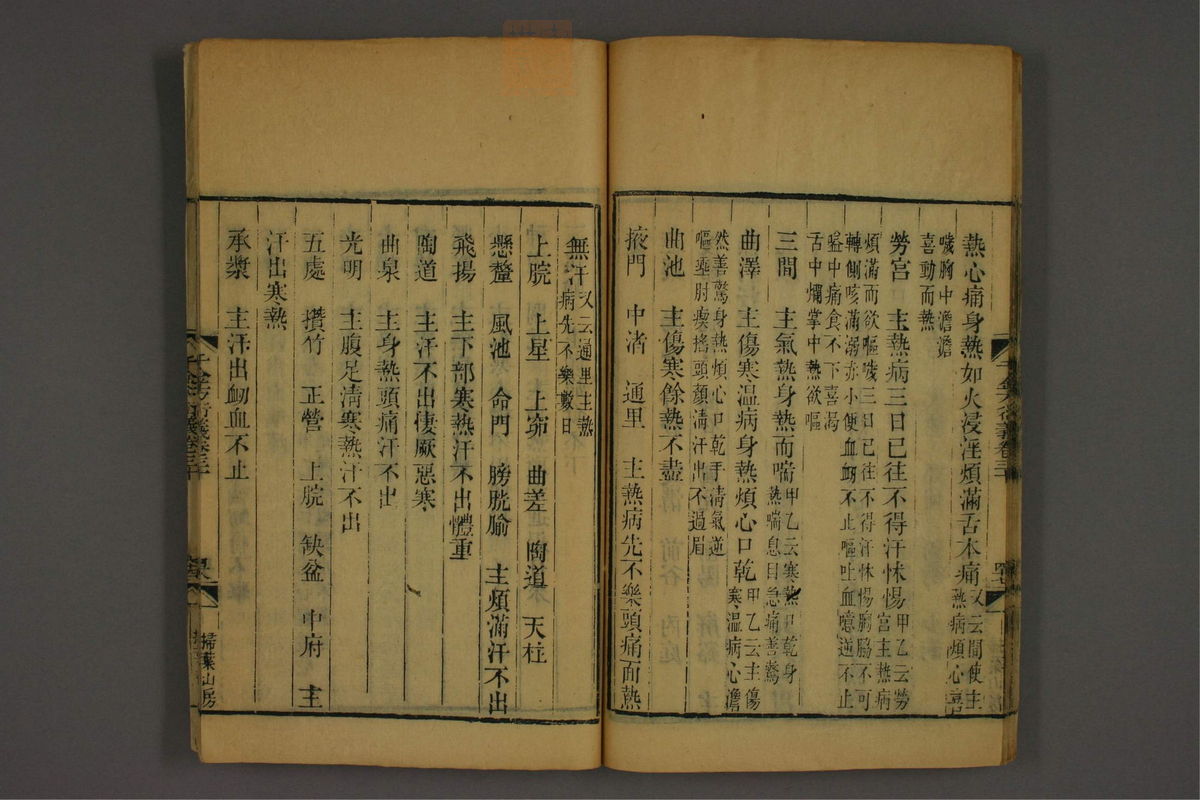 熱心痛身熱如火浸淫煩滿舌本痛又云間使主熱病煩心喜
噦胸中澹澹喜動而熱
勞宮　主熱病三日已往不得汗怵惕甲乙云勞宮主熱病
煩滿而欲嘔噦三日已往不得汗怵惕胸脇不可轉側咳滿溺赤小便血衄不止嘔吐血噫逆不止
嗌中痛食不下喜渴舌中爛掌中熱欲嘔
三間　主氣熱身熱而喘甲乙云寒熱口乾身熱喘息目急痛善驚
曲澤　主傷寒温病身熱煩心口乾甲乙云主傷寒温病心澹
然善驚身熱煩心口乾手清氣逆嘔唾肘瘈搖頭顏清汗出不過眉
曲池　主傷寒餘熱不盡
掖門　中渚　通里　主熱病先不樂頭痛面熱
無汗又云通里主熱病先不樂數日
上脘　上星　上窌　曲差　陶道　天柱
懸釐　風池　命門　膀胱腧　主煩滿汗不出
飛揚　主下部寒熱汗不出體重
陶道　主汗不出悽厥惡寒
曲泉　主身熱頭痛汗不出
光明　主腹足清寒熱汗不出
五處　攢竹　正營　上脘　缺盆　中府　主
汗出寒熱
承漿　主汗出衄血不止
千金方衍義卷三十
掃葉山房